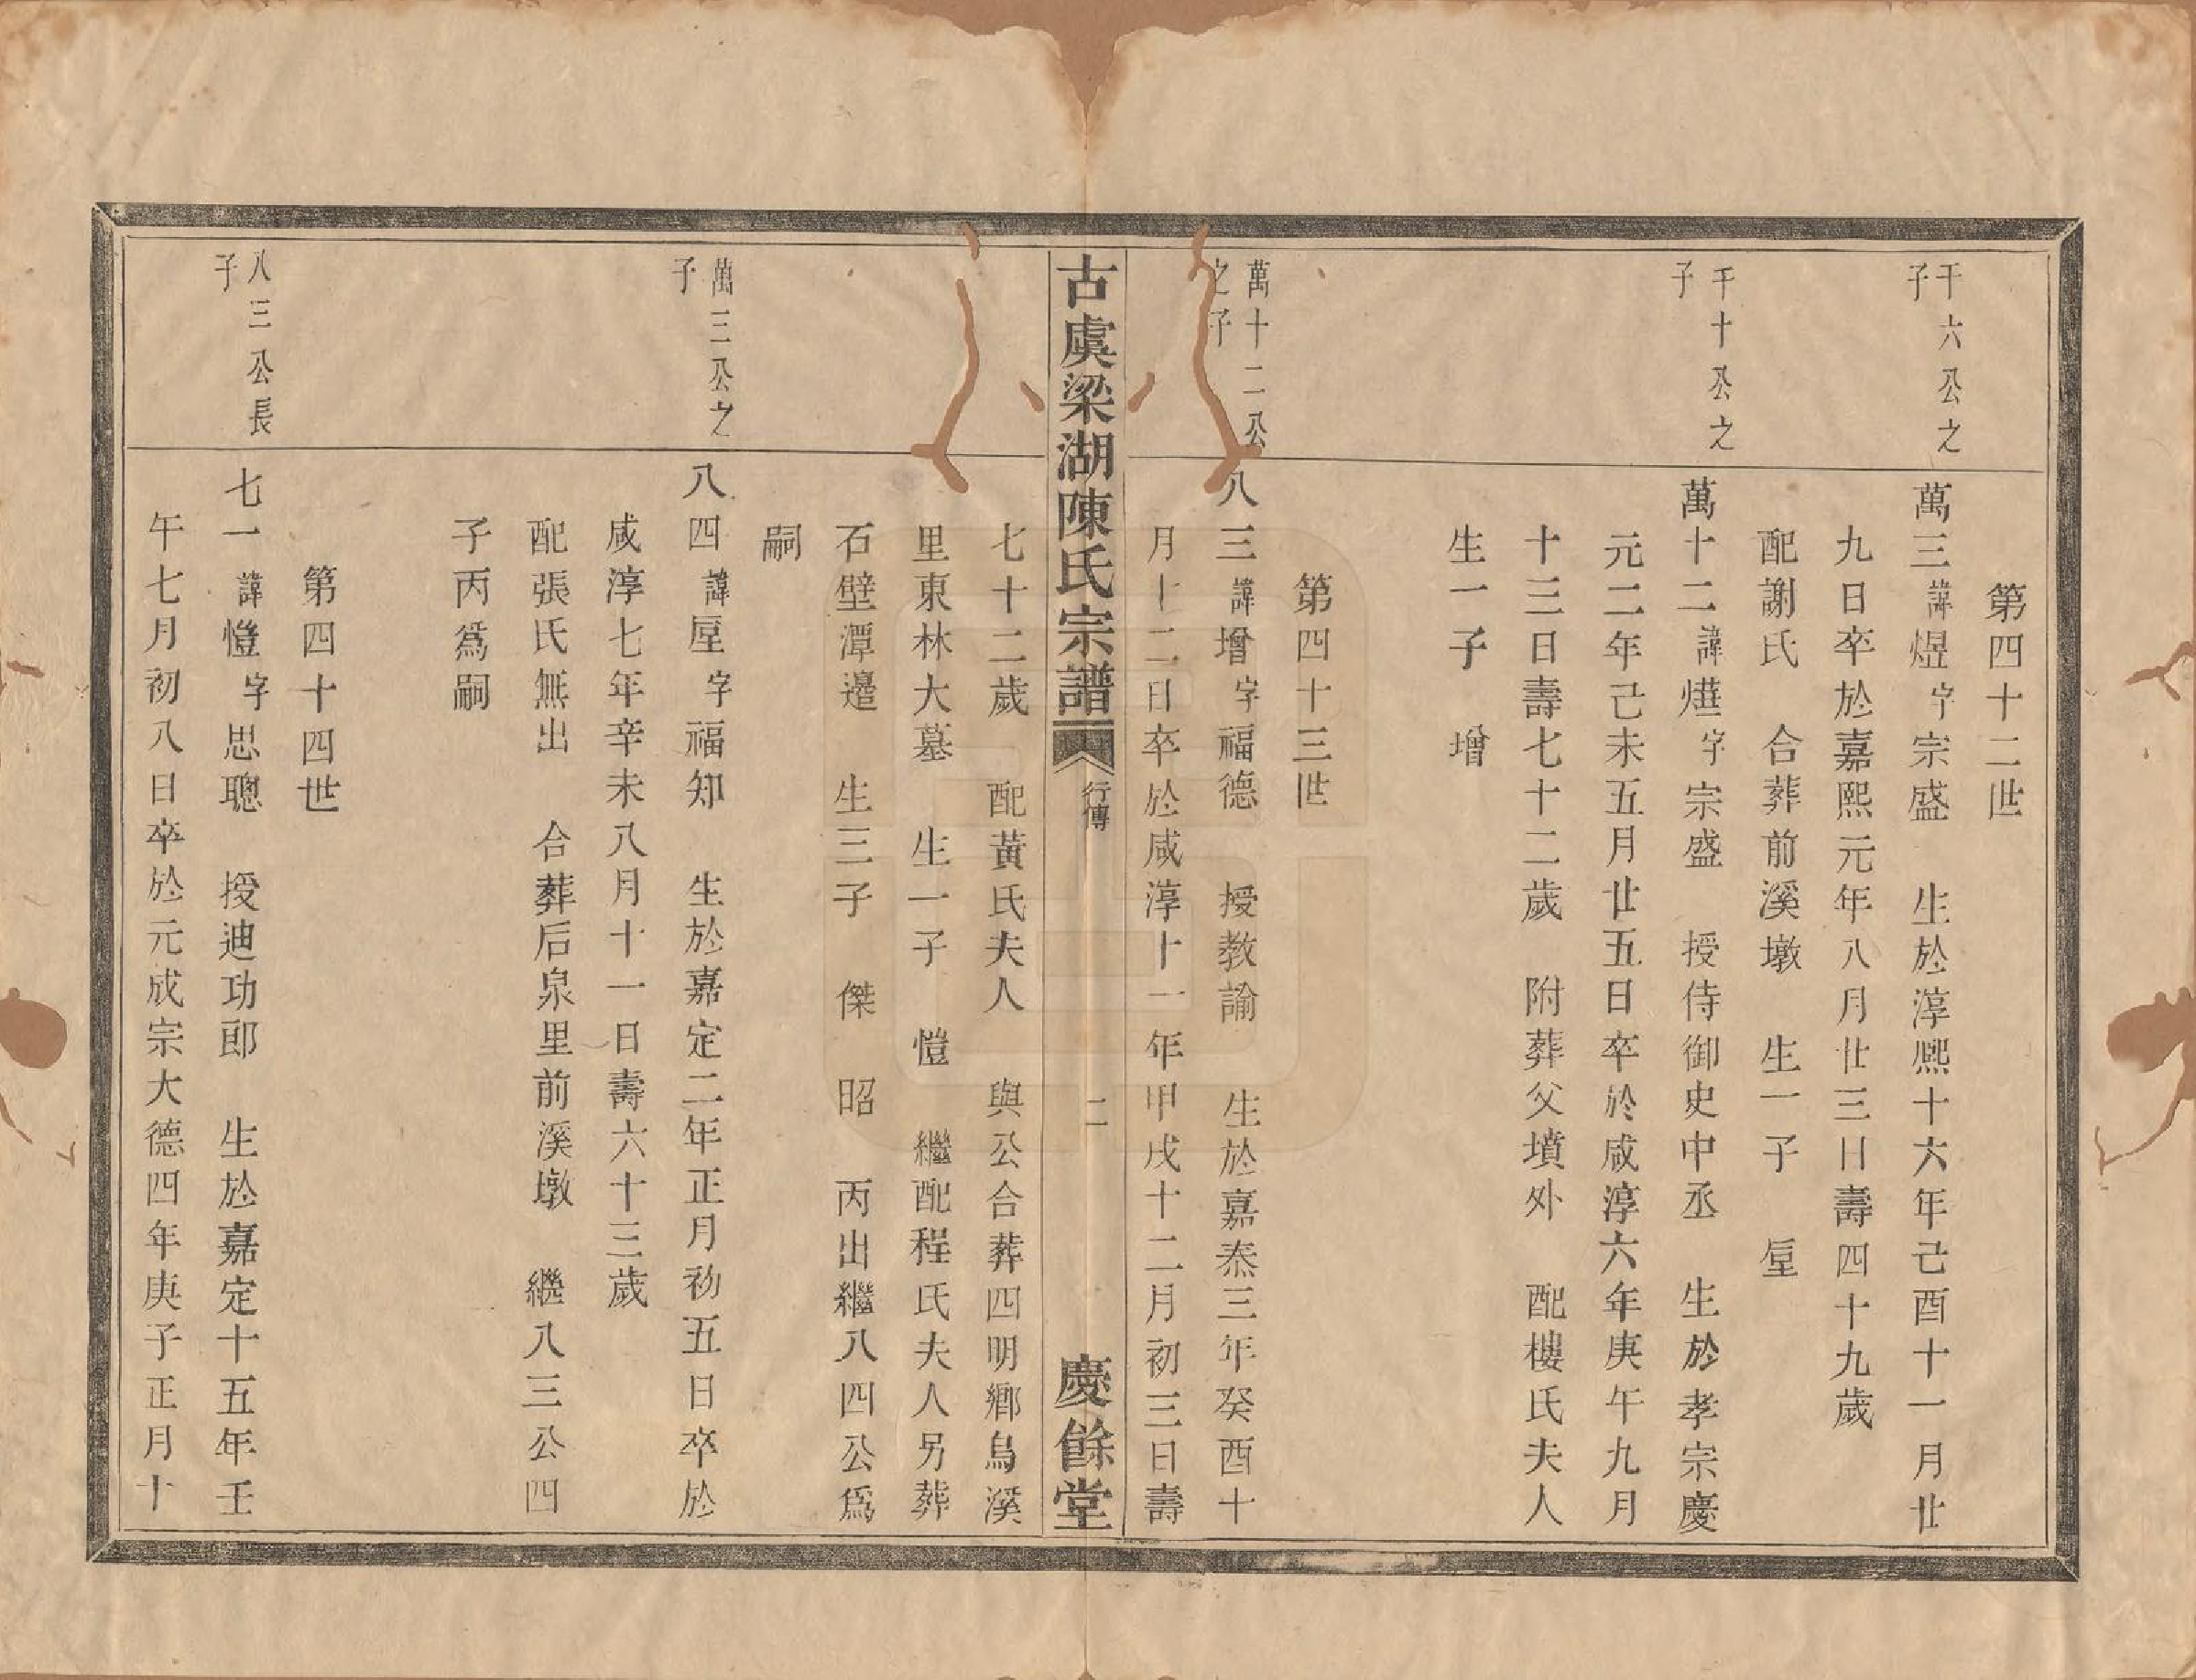 第四十二世
千六公之
子
萬三諱煜字宗盛　生於淳熙十六年己酉十一月廿
九日卒於嘉熙元年八月廿三日壽四十九歲
配謝氏　合葬前溪墩　生一子　垕
千十公之
子
萬十二諱燁字宗盛　授侍御史中丞　生於孝宗慶
元二年己未五月廿五日卒於咸淳六年庚午九月
十三日壽七十二歲　附葬父墳外　配樓氏夫人
生一子　增
第四十三世
萬十二公
之子
八三諱增字福德　授教諭　生於嘉泰三年癸酉十
月十二日卒於咸淳十一年甲戌十二月初三日壽
古虞梁湖陳氏宗譜
行傳
二
慶餘堂
七十二歲　配黃氏夫人　與公合葬四明鄉烏溪
里東林大墓　生一子　愷　繼配程氏夫人另葬
石壁潭邉　生三子　傑　昭　丙出繼八四公爲
嗣
萬三公之
子
八四諱垕字福知　生於嘉定二年正月初五日卒於
咸淳七年辛未八月十一日壽六十三歲
配張氏無出　合葬后泉里前溪墩　繼八三公四
子丙爲嗣
第四十四世
八三公長
子
七一諱愷字思聰　授迪功郎　生於嘉定十五年壬
午七月初八日卒於元成宗大德四年庚子正月十